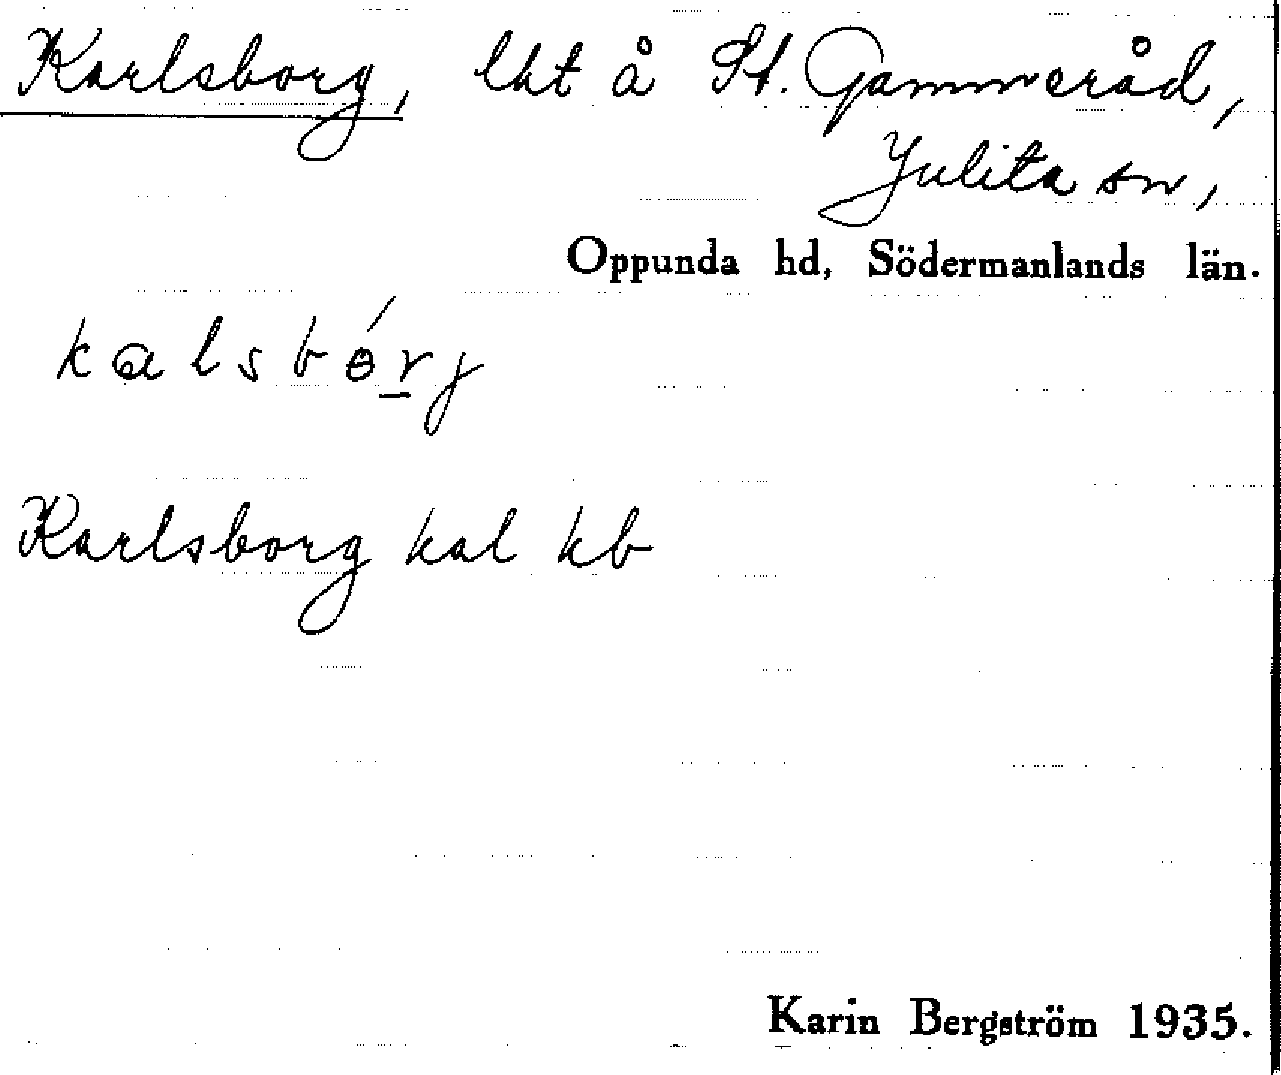 Karlsborg, lht å St. Gammeråd,
Julita sn,
Oppunda hd, Södermanlands län.
kalsbórj
Karlsborg kal kb
Karin Bergström 1935.